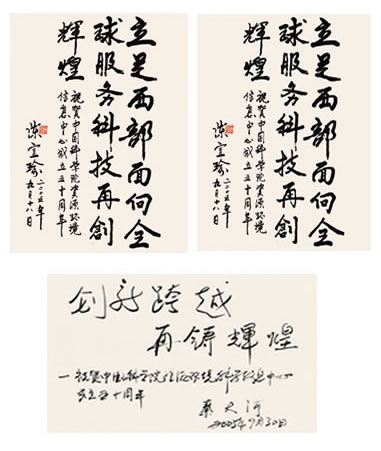 立足西部面向全
球服务科技再創
輝煌
祝贺中国科学院资源环境
信息中心成立五十周年
陈宜瑜
二〇〇五年
九月十八日
立足西部面向全
球服务科技再創
輝煌
祝贺中国科学院资源环境
信息中心成立五十周年
陈宜瑜
二〇〇五年
九月十八日
创新跨越
再铸輝煌
—祝贺中国科学院资源环境科学信息中心
成立五十周年
秦大河
2005年9月30日